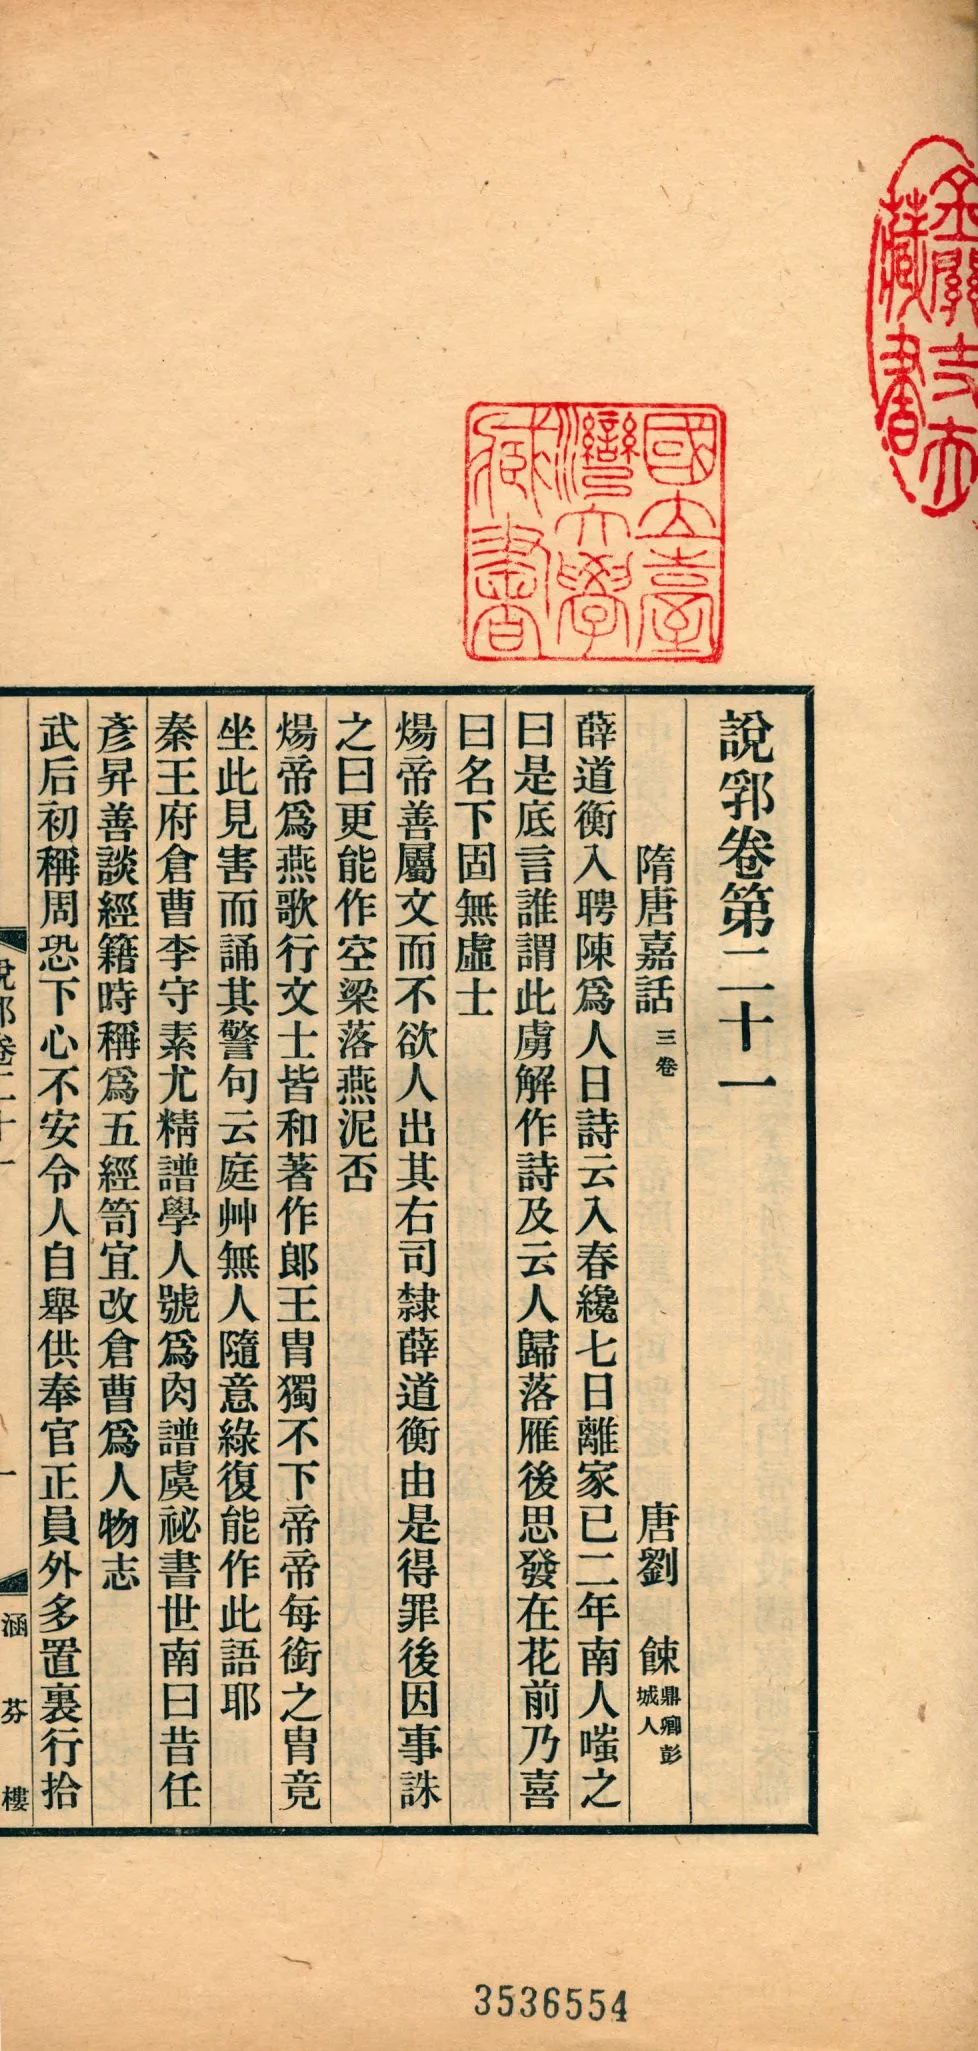 說郛卷第二十一
隋唐嘉話三卷　唐劉餗鼎卿彭城人
薛道衡入聘陳爲人日詩云入春纔七日離家已二年南人嗤之
曰是底言誰謂此虜解作詩及云人歸落雁後思發在花前乃喜
曰名下固無虛士
煬帝善屬文而不欲人出其右司隸薛道衡由是得罪後因事誅
之曰更能作空梁落燕泥否
煬帝爲燕歌行文士皆和著作郞王胄獨不下帝帝每銜之胄竟
坐此見害而誦其警句云庭艸無人隨意綠復能作此語耶
秦王府倉曹李守素尤精譜學人號爲肉譜虞祕書世南曰昔任
彥昇善談經籍時稱爲五經笥宜改倉曹爲人物志
武后初稱周恐下心不安令人自舉供奉官正員外多置裏行拾
說郛卷二十一
一
涵芬樓
國立臺
灣大學
藏書
金關丈夫
藏書
3536554